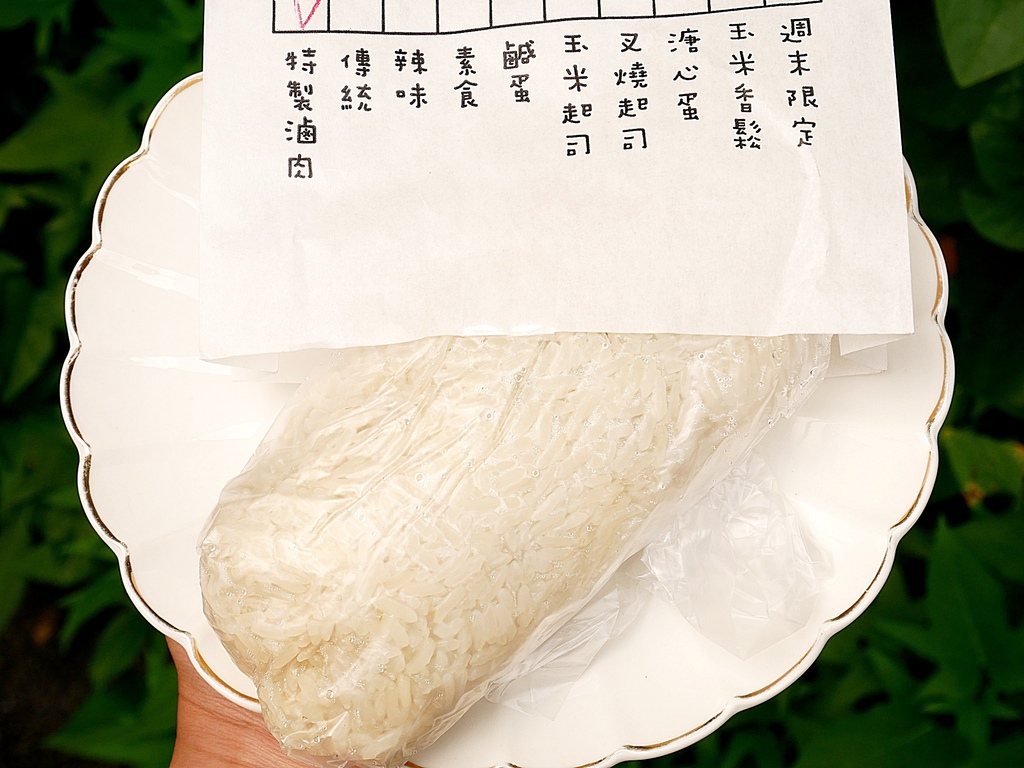 特製滷肉
傳統
辣味
素食
鹹蛋
玉米起司
叉燒起司
溏心蛋
玉米香鬆
週末限定